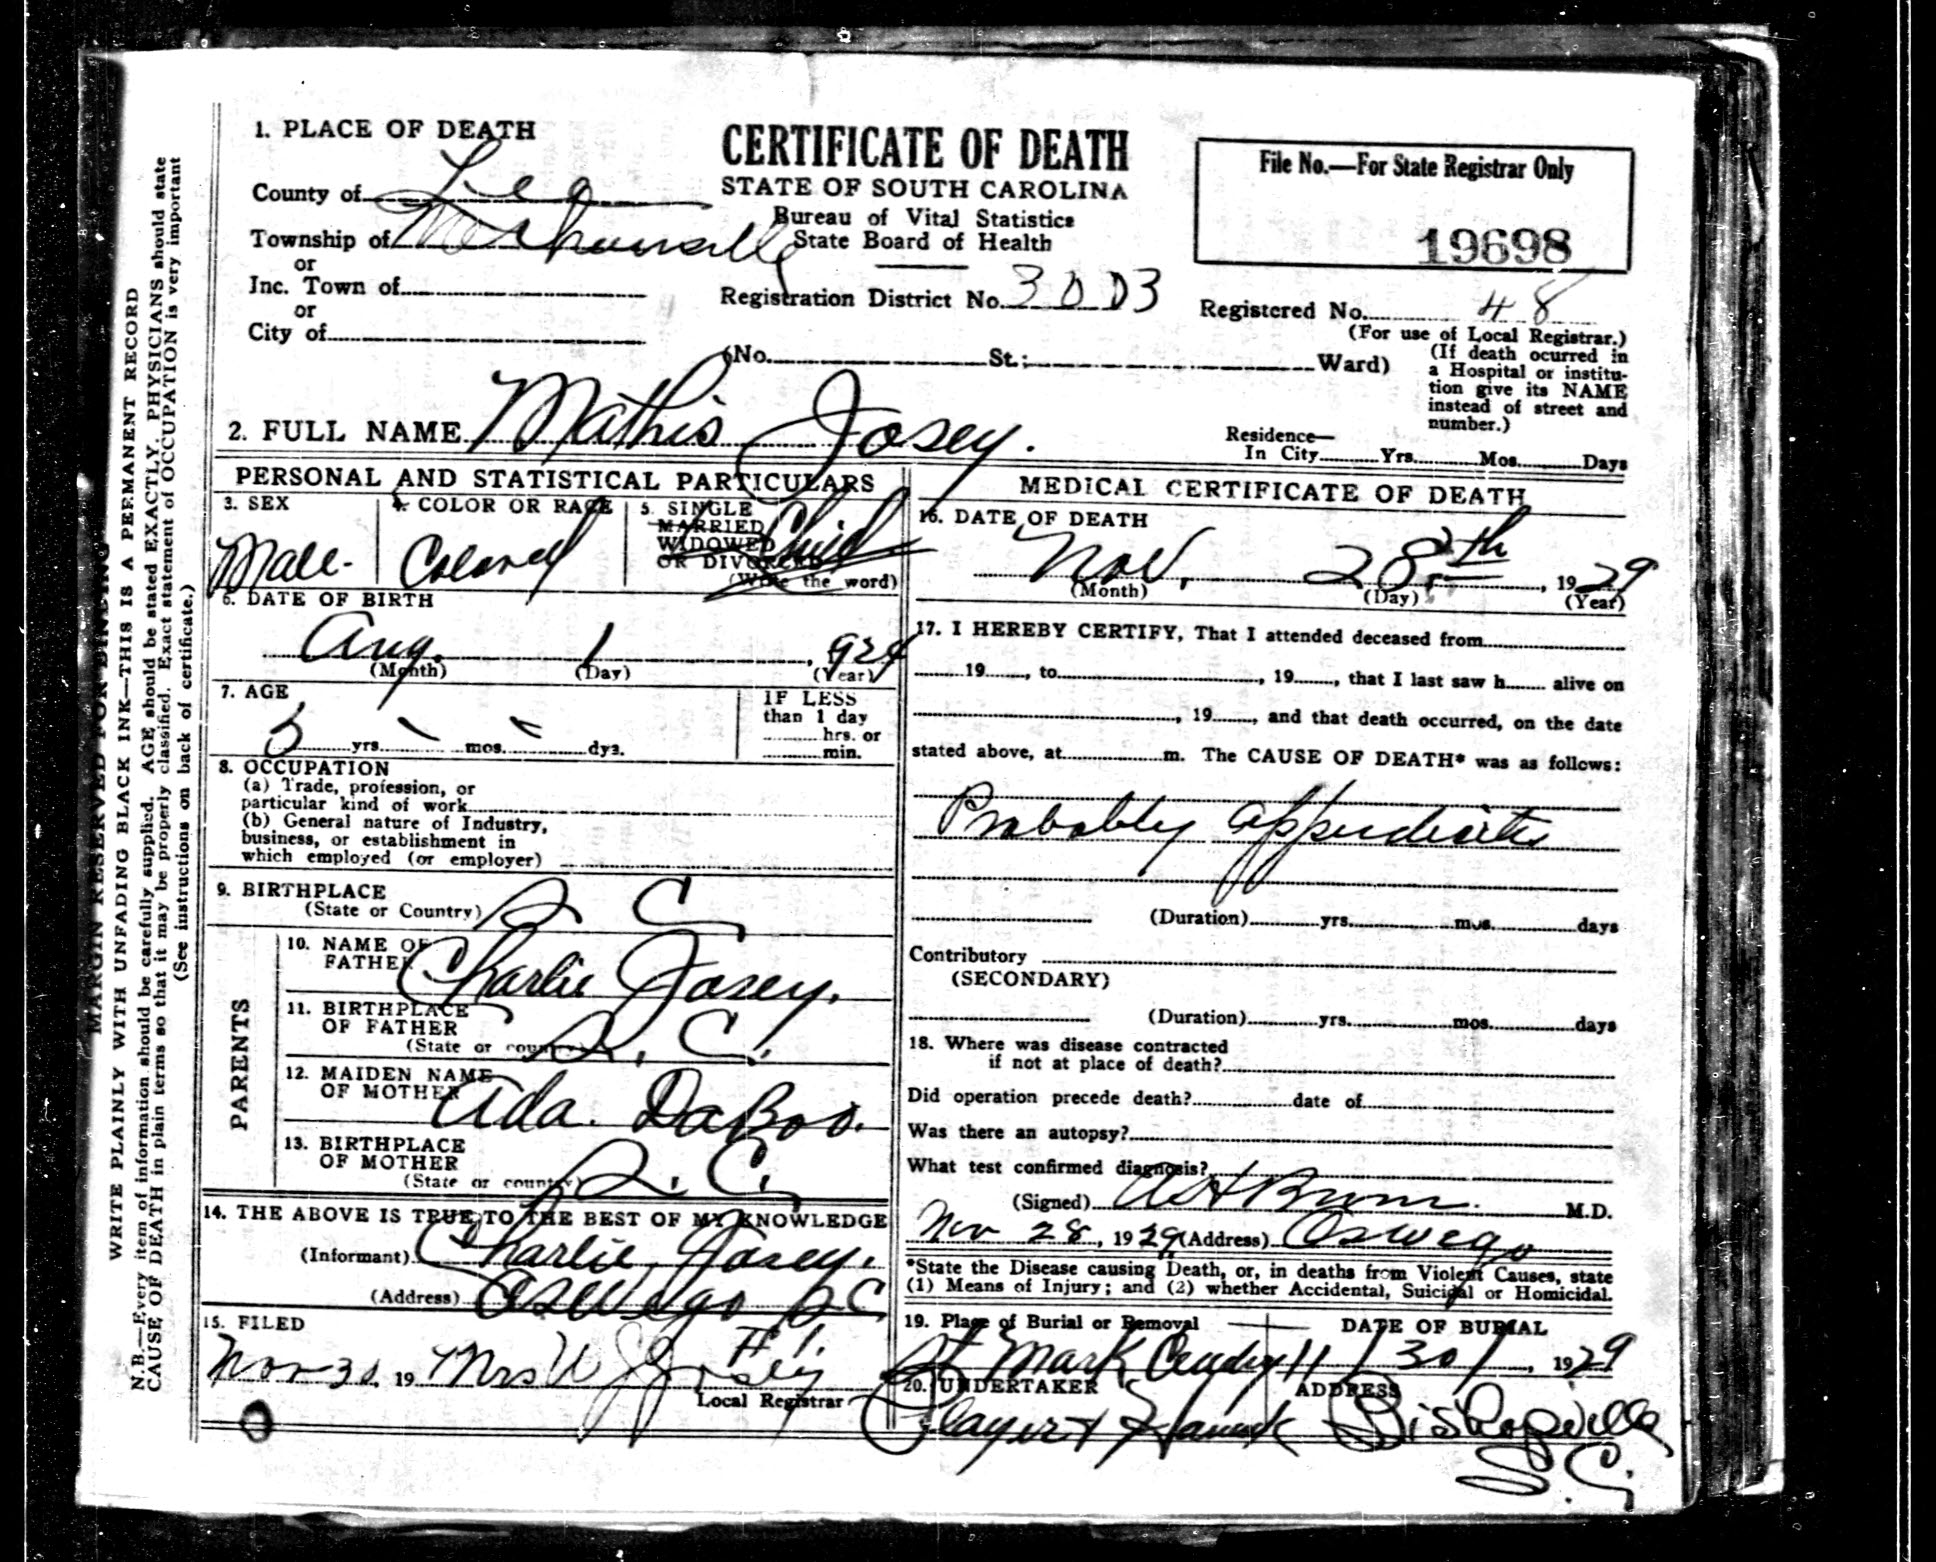 MARGIN RESERVED FOR BINDING
WRITE PLAINLY WITH UNFADING BLACK INK—THIS IS A PERMANENT RECORD
N.B.—Every item of information should be carefully supplied. AGE should be stated EXACTLY. PHYSICIANS should state
CAUSE OF DEATH in plain terms so that it may be properly classified. Exact statement of OCCUPATION is very important
(See instructions on back of certificate.)
1. PLACE OF DEATH
County of Lee
Township of
or
Inc. Town of
or
City of
CERTIFICATE OF DEATH
STATE OF SOUTH CAROLINA
Bureau of Vital Statistics
State Board of Health
Registration District No. 30D3
File No.—For State Registrar Only
19698
Registered No. 48
(For use of Local Registrar.)
(No. St.; Ward)
(If death ocurred in
a Hospital or institu-
tion give its NAME
instead of street and
number.)
2. FULL NAME Mathis Josey.
Residence—
In City Yrs. Mos. Days
PERSONAL AND STATISTICAL PARTICULARS
3. SEX
Male.
4. COLOR OR RACE
Colored
5. SINGLE
MARRIED
WIDOWED
OR DIVORCED
Child
(Write the word)
6. DATE OF BIRTH
Aug. 1, 1924
(Month) (Day) (Year)
7. AGE
5 yrs. mos. dys.
IF LESS
than 1 day
hrs. or
min.
8. OCCUPATION
(a) Trade, profession, or
particular kind of work
(b) General nature of Industry,
business, or establishment in
which employed (or employer)
9. BIRTHPLACE
(State or Country) S C
PARENTS
10. NAME OF
FATHER Charlie Josey.
11. BIRTHPLACE
OF FATHER
(State or country) S. C.
12. MAIDEN NAME
OF MOTHER Ada. DaBos.
13. BIRTHPLACE
OF MOTHER
(State or country) S. C.
14. THE ABOVE IS TRUE TO THE BEST OF MY KNOWLEDGE
(Informant) Charlie Josey.
(Address) Oswego S C
15. FILED
Nov 30, 19 Mrs W
Local Registrar
MEDICAL CERTIFICATE OF DEATH
16. DATE OF DEATH
Nov. 28th, 1929
(Month) (Day) (Year)
17. I HEREBY CERTIFY, That I attended deceased from
19, to, 19, that I last saw h alive on
, 19, and that death occurred, on the date
stated above, at m. The CAUSE OF DEATH* was as follows:
Probably appendicitis
(Duration) yrs. mos. days
Contributory
(SECONDARY)
(Duration) yrs. mos. days
18. Where was disease contracted
if not at place of death?
Did operation precede death? date of
Was there an autopsy?
What test confirmed diagnosis?
(Signed) M.D.
Nov 28, 1929 (Address) Oswego
*State the Disease causing Death, or, in deaths from Violent Causes, state
(1) Means of Injury; and (2) whether Accidental, Suicidal or Homicidal.
19. Place of Burial or Removal
St Mark
DATE OF BURIAL
11/30/, 1929
20. UNDERTAKER
ADDRESS
Bishopville
S.C.